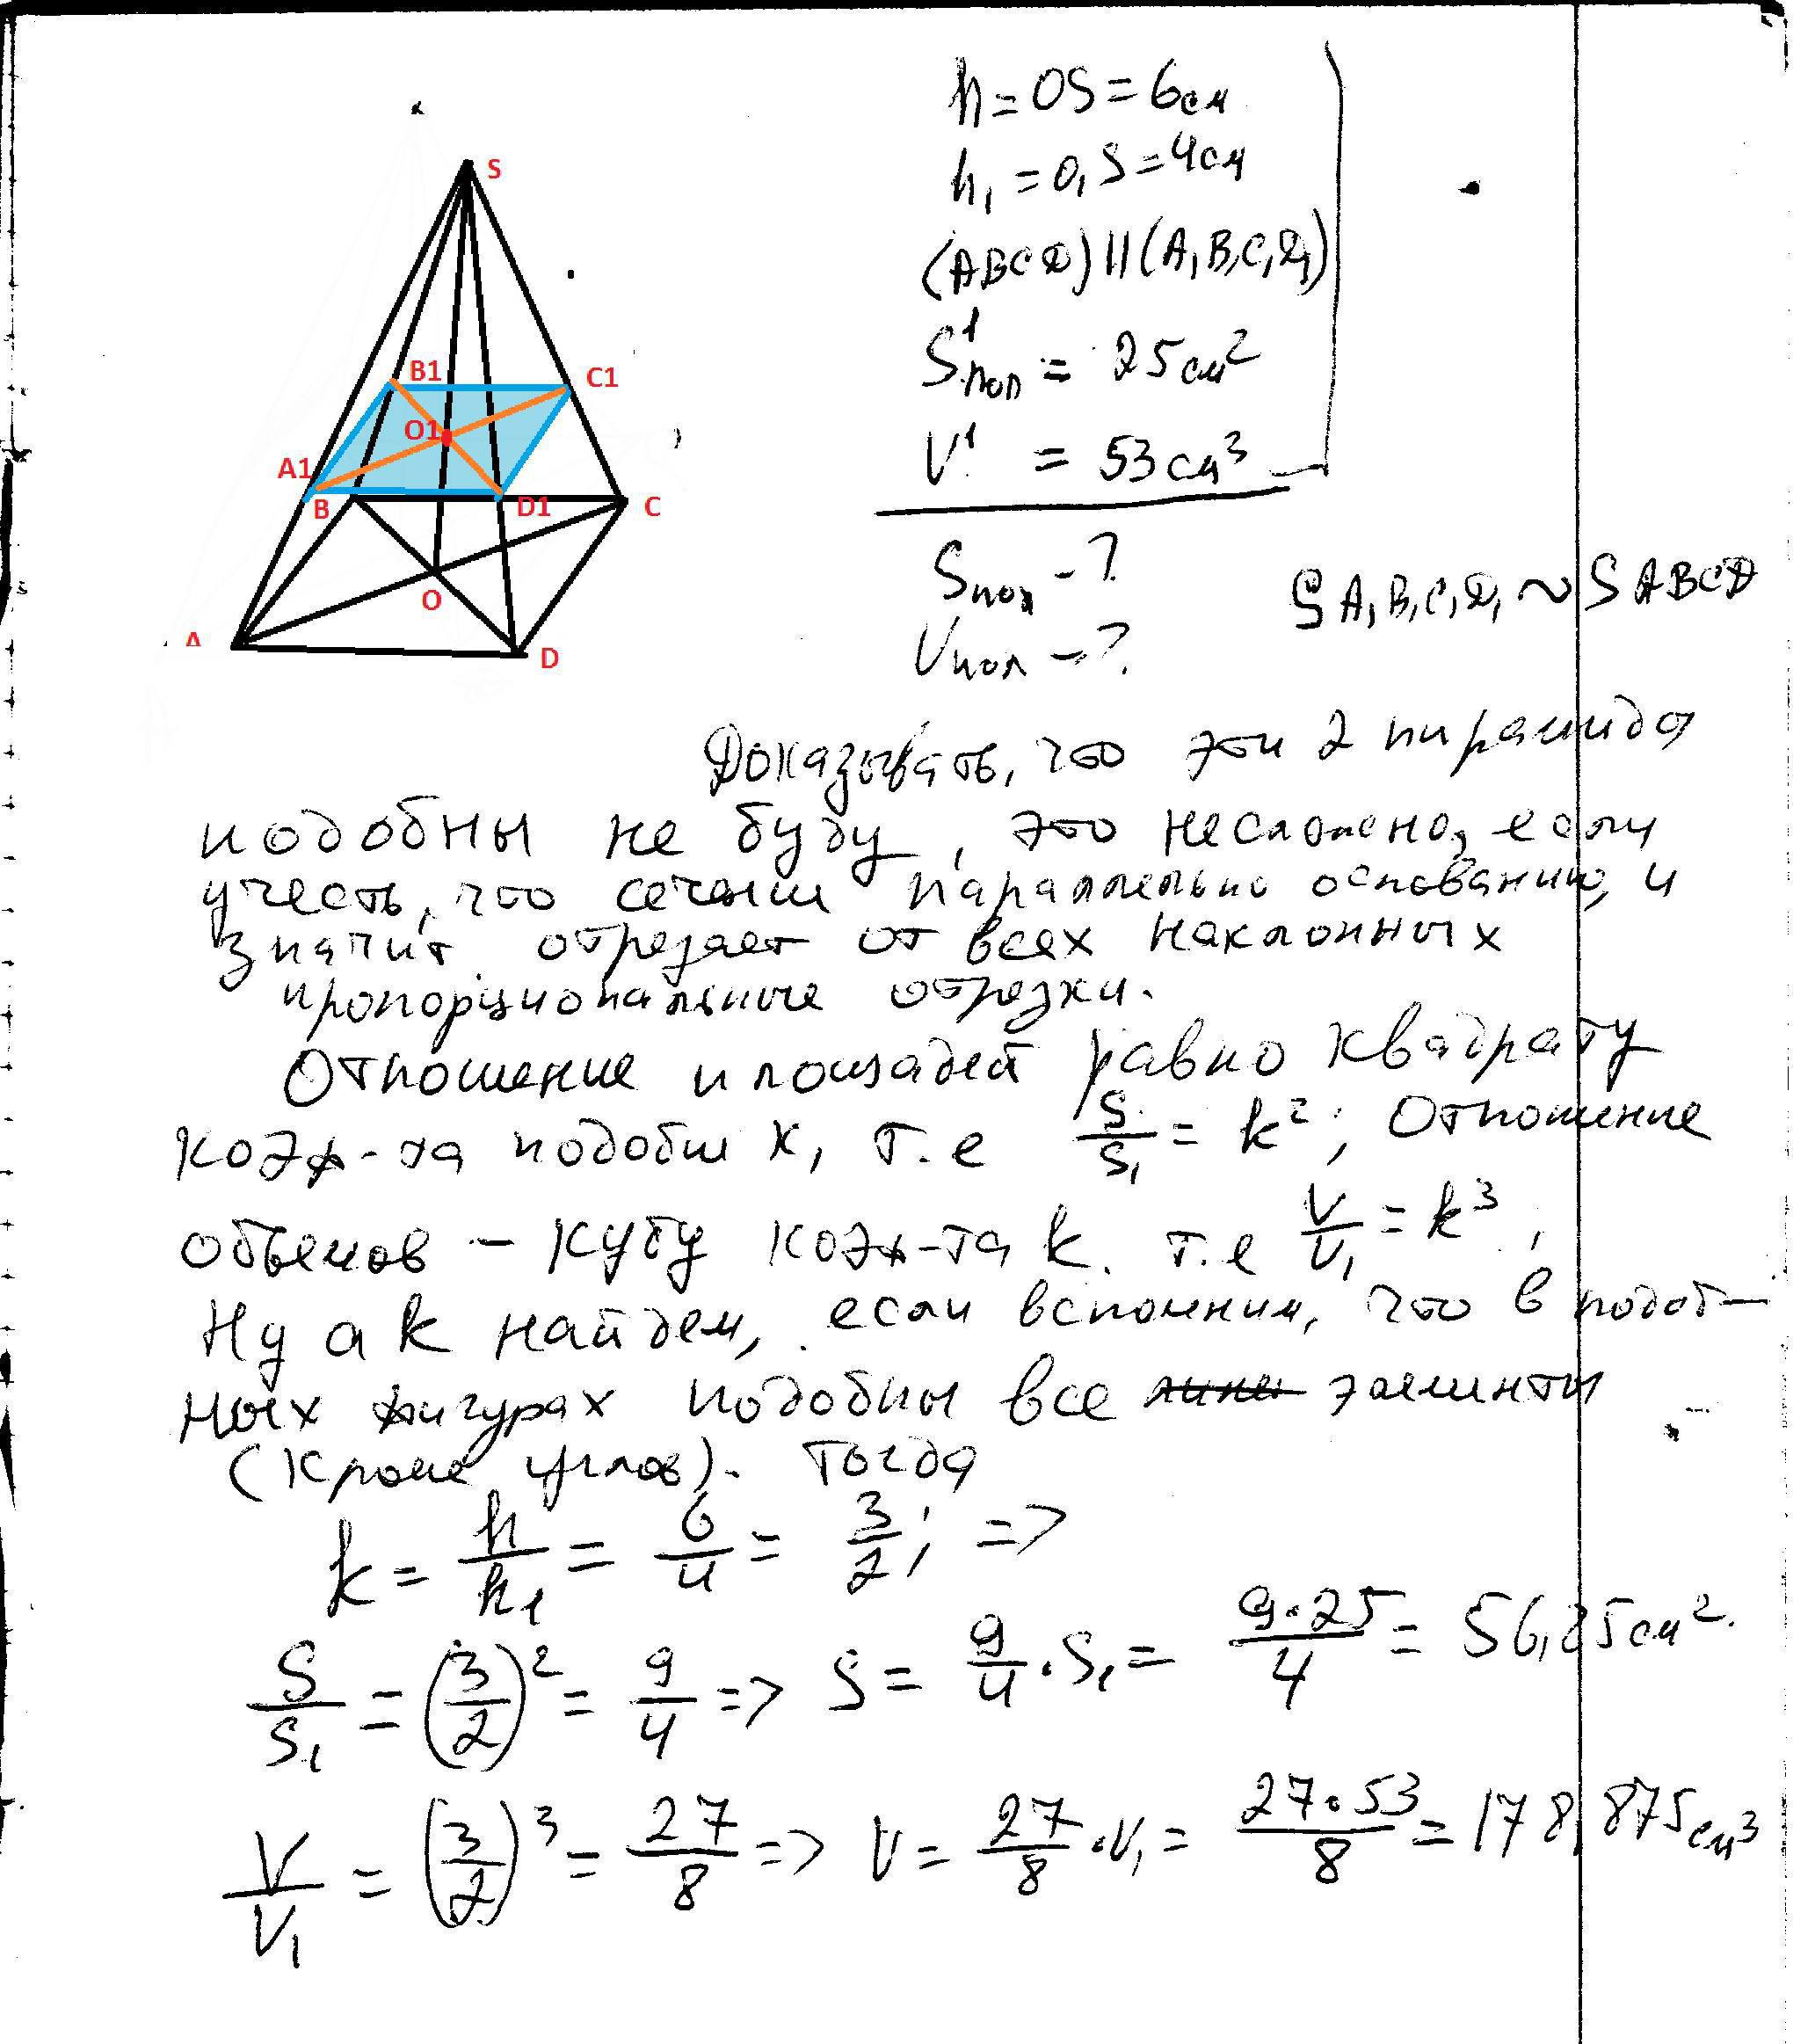 S
B1
C1
O1
A1
B
D1
C
O
A
D
h = OS = 6см
h₁ = O₁S = 4см
(ABCD) || (A₁B₁C₁D₁)
S¹пол = 25см²
V¹ = 53см³
Sпол - ?
Vпол - ?
SA₁B₁C₁D₁ ~ SABCD
Доказывать, что эти 2 пирамиды
подобны не буду, это несложно, если
учесть, что сечение параллельно основанию, и
значит отрезает от всех наклонных
пропорциональные отрезки.
Отношение площадей равно квадрату
коэф-та подобия к, т.е S/S₁ = k²; Отношение
объемов - кубу коэф-та k. т.е V/V₁ = k³;
Ну а k найдем, если вспомним, что в подоб-
ных фигурах подобны все элементы
(кроме углов). Тогда
k = h/h₁ = 6/4 = 3/2; =>
S/S₁ = (3/2)² = 9/4 => S = 9/4 · S₁ = 9·25/4 = 56,25см².
V/V₁ = (3/2)³ = 27/8 => V = 27/8 · V₁ = 27·53/8 = 178,875см³